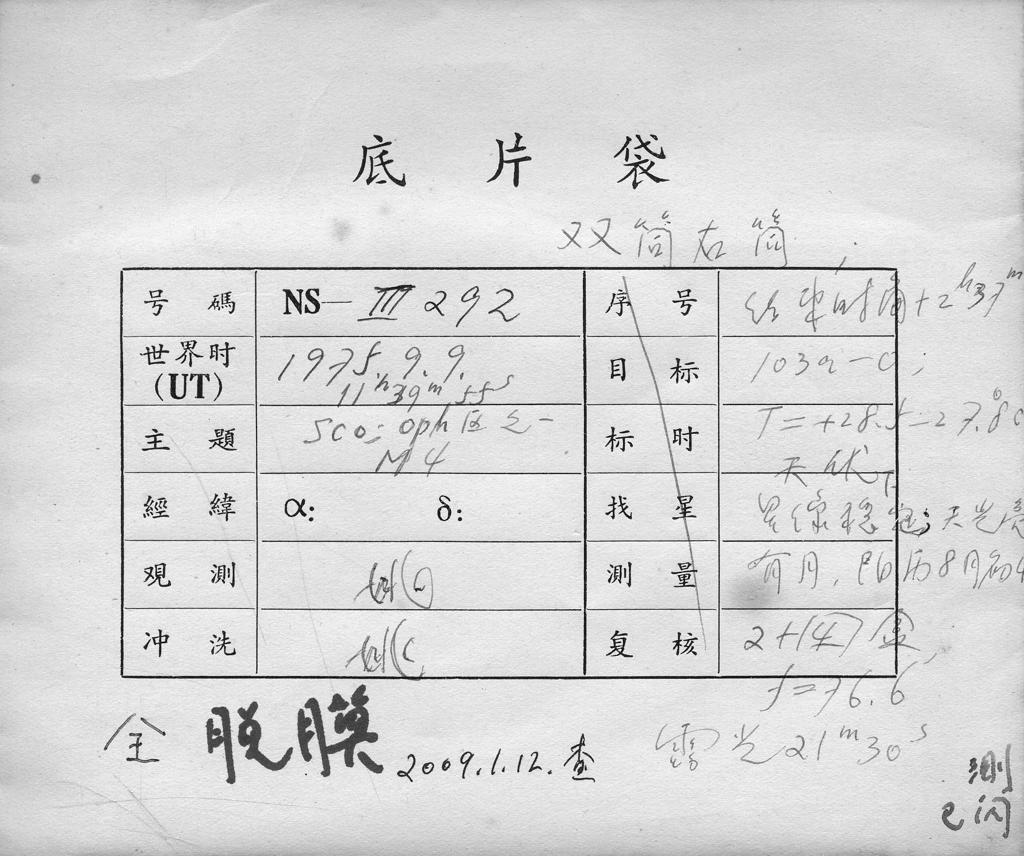 底片袋
双筒右筒
号碼 NS—III 292 序号 结束时角+2h37m
世界时(UT) 1975.9.9. 目标 103a-O,
11h39m55s
主題 Sco-Oph区之一 标时 T=+28.5-27.8
M4 天伏
經緯 α: δ: 找星 星像稳定;天光亮
观測 測量 有月,阴历8月初4
冲洗 复核 2+(4)盒,
f=76.6
露光21m30s
全 脱膜 2009.1.12.查
測
已闪